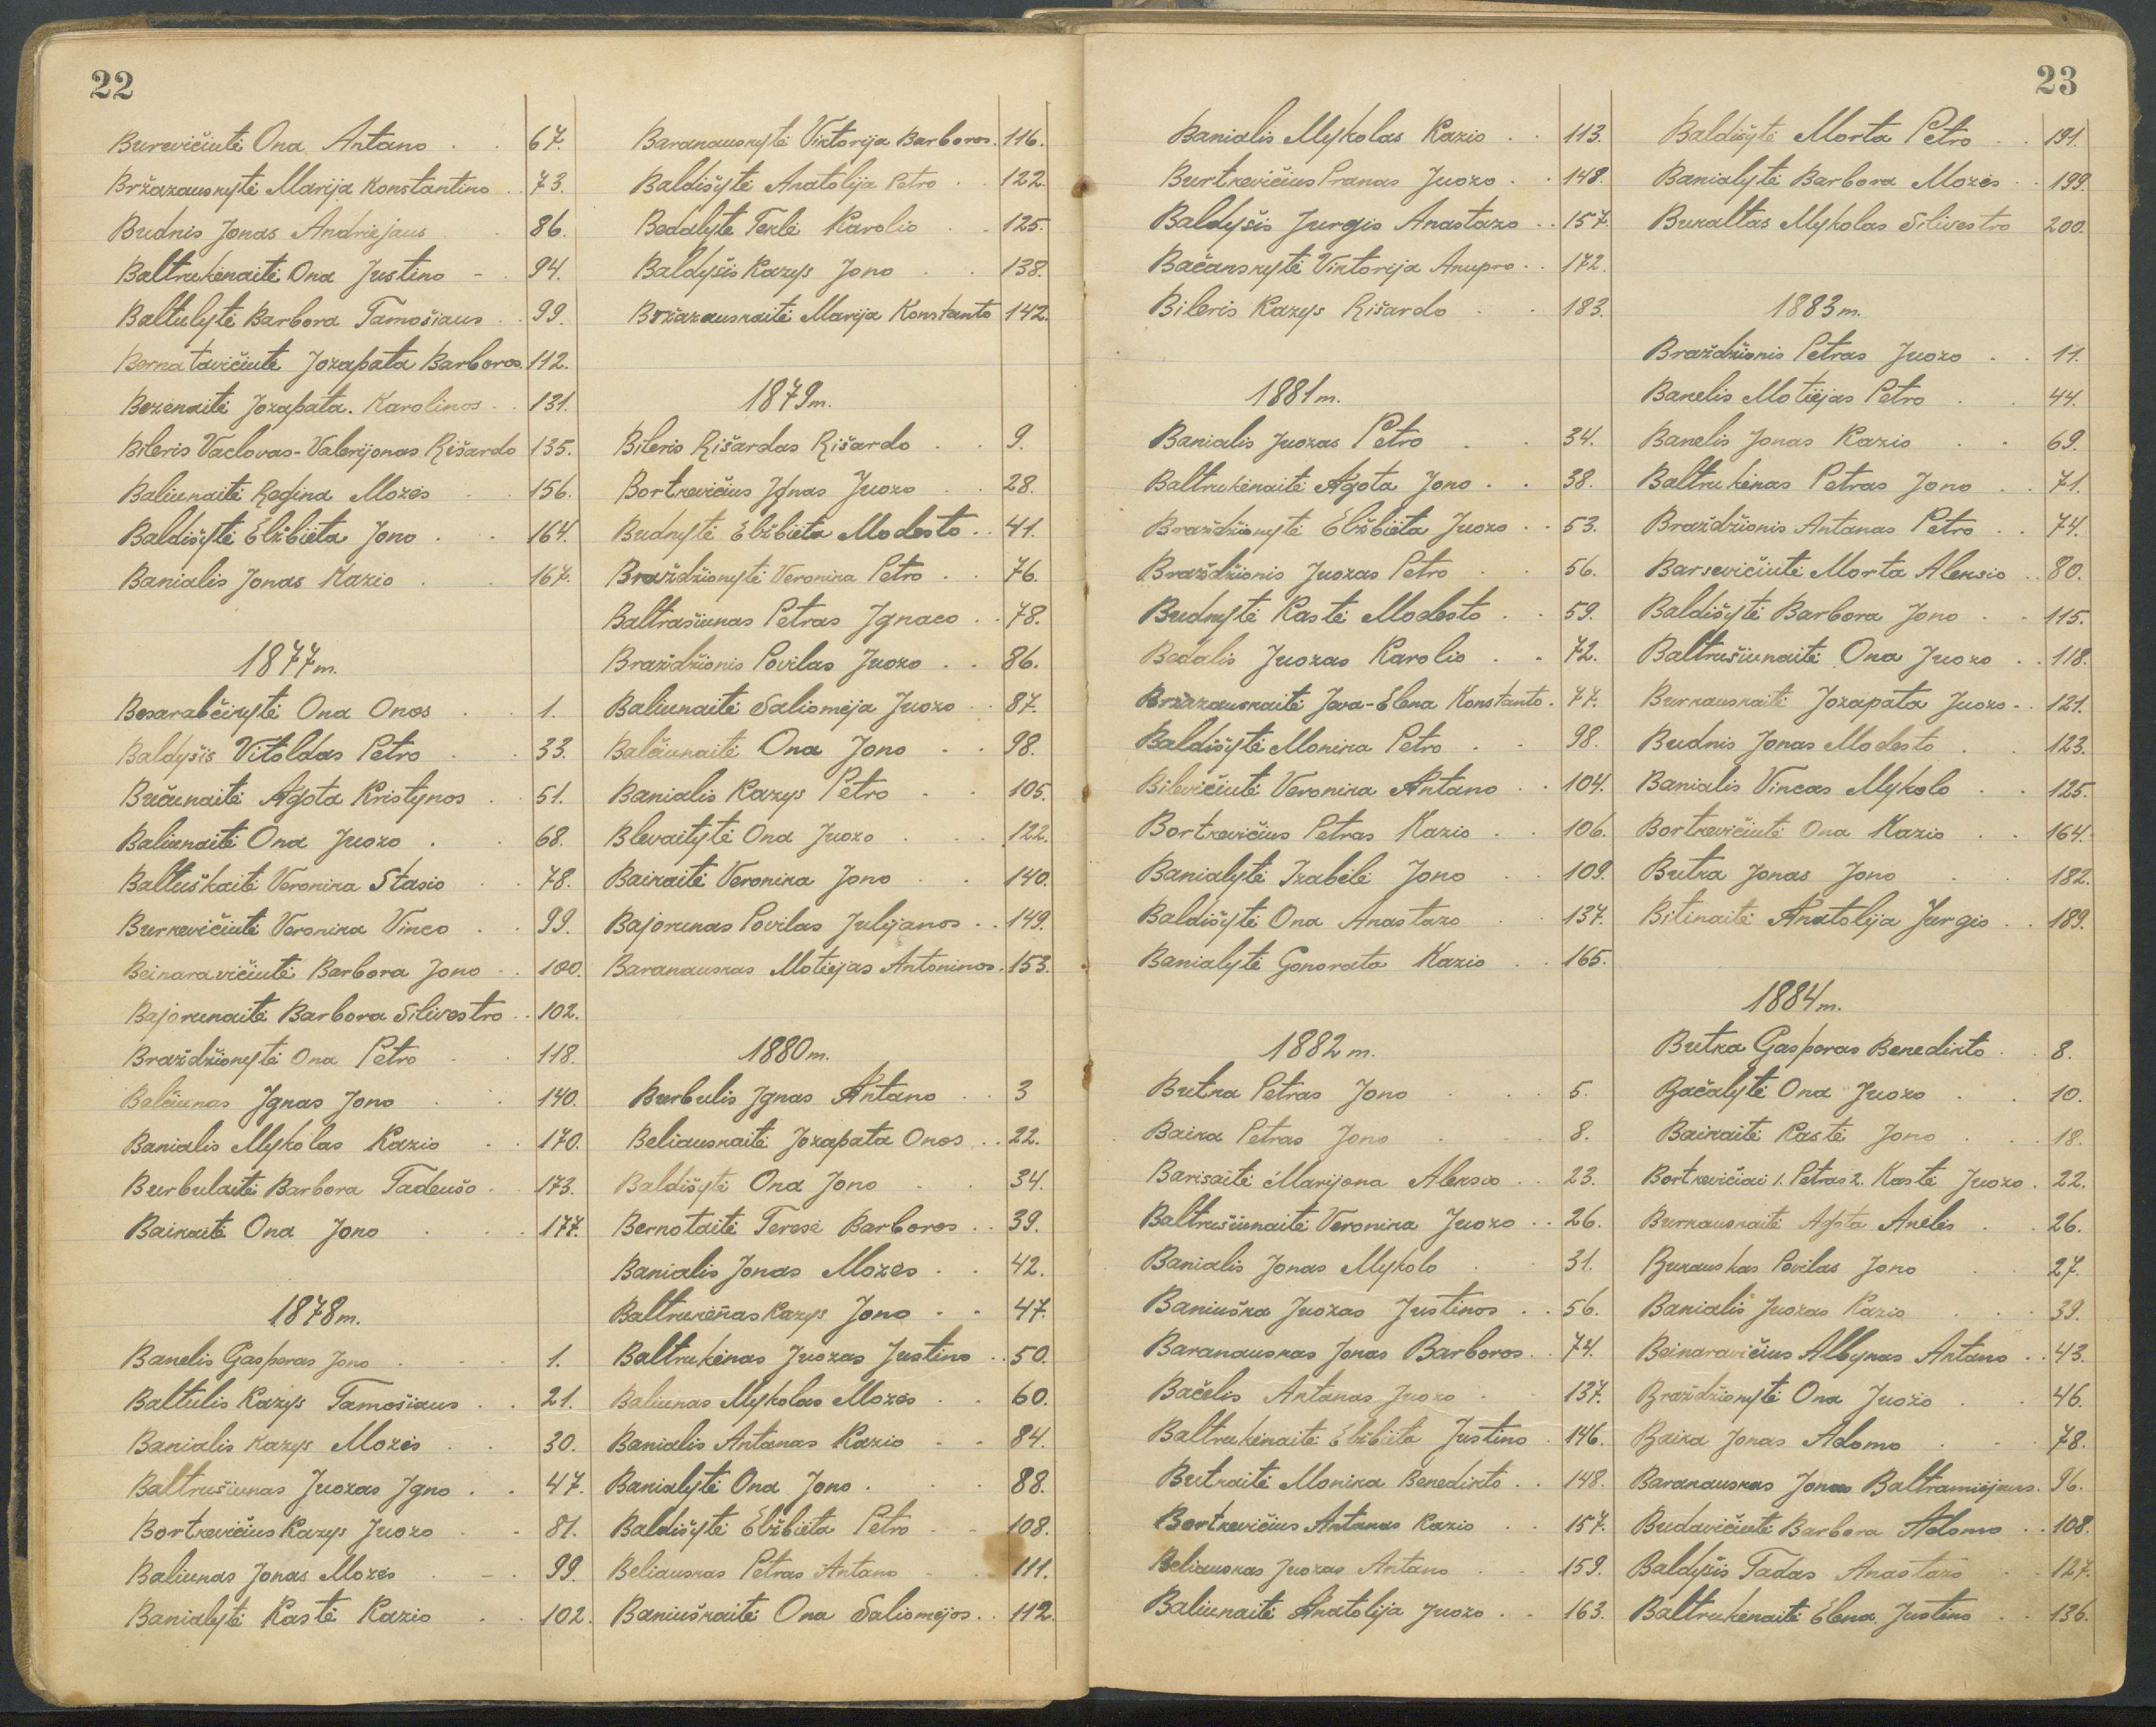 22
Burevičiutė Ona Antano . . 67.
Bržazauskytė Marija Konstantino . . 73.
Budnis Jonas Andriejaus . . 86.
Baltrukėnaitė Ona Justino - . 94.
Baltulytė Barbora Tamošiaus . . 99.
Bernatavičiutė Jozapata Barboros. 112.
Bezenaitė Jozapata. Karolinos . . 131.
Bileris Vaclovas-Valerijonas Rišardo 135.
Baliunaitė Regina Mozės . . 156.
Baldišytė Elžbieta Jono . . 164.
Banialis Jonas Kazio . . 167.
1877m.
Besarabčikytė Ona Onos . . 1.
Baldyšis Vitoldas Petro . . 33.
Bučunaitė Agota Kristynos . . 51.
Baliunaitė Ona Juozo . . 68.
Baltuškaitė Veronika Stasio . . 78.
Burkevičiutė Veronika Vinco . . 99.
Beinaravičiutė Barbora Jono . . 100.
Bajorunaitė Barbora Silivestro . . 102.
Braždžionytė Ona Petro . . 118.
Balčiunas Ignas Jono . . 140.
Banialis Mykolas Kazio . . 170.
Burbulaitė Barbora Tadeušo . . 173.
Baikaitė Ona Jono . . . 177.
1878m.
Banelis Gasparas Jono . . . 1.
Baltulis Kazys Tamošiaus . . 21.
Banialis Kazys Mozės . . 30.
Baltrušiunas Juozas Igno . . 47.
Bortkevičius Kazys Juozo . . 81.
Baliunas Jonas Mozės . . . 99.
Banialytė Kastė Kazio . . 102.
Baranauskytė Viktorija Barboros. 116.
Baldišytė Anatolija Petro . . 122.
Bedalytė Teklė Karolio . . 125.
Baldyšis Kazys Jono . . 138.
Bržazauskaitė Marija Konstanto 142.
1879m.
Bileris Rišardas Rišardo . . 9.
Bortkevičius Ignas Juozo . . 28.
Budnytė Elžbieta Modesto . . 41.
Braždžionytė Veronika Petro . . 76.
Baltrašiunas Petras Ignaco . . 78.
Braždžionis Povilas Juozo . . 86.
Baliunaitė Saliomėja Juozo . . 87.
Balčiunaitė Ona Jono . . 98.
Banialis Kazys Petro . . 105.
Blevaitytė Ona Juozo . . . 122.
Baikaitė Veronika Jono . . 140.
Bajorunas Povilas Julijanos . . 149.
Baranauskas Motiejas Antoninos. 153.
1880m.
Burbulis Ignas Antano . . 3
Beliauskaitė Jozapata Onos . . 22.
Baldišytė Ona Jono . . 34.
Bernotaitė Teresė Barboros . . 39.
Banialis Jonas Mozės . . 42.
Baltrukėnas Kazys Jono . . 47.
Baltrukėnas Juozas Justino . . 50.
Baliunas Mykolas Mozės . . 60.
Banialis Antanas Kazio . . 84.
Banialytė Ona Jono . . . 88.
Baldišytė Elžbieta Petro . . 108.
Beliauskas Petras Antano . . 111.
Baniuškaitė Ona Saliomėjos . . 112.
23
Banialis Mykolas Kazio . . 113.
Burtkevičius Pranas Juozo . . 148.
Baldyšis Jurgis Anastazo . . 157.
Bačanskytė Viktorija Anupro . . 172.
Bileris Kazys Rišardo . . 183.
1881m.
Banialis Juozas Petro . . 34.
Baltrukėnaitė Agota Jono . . 38.
Braždžionytė Elžbieta Juozo . . 53.
Braždžionis Juozas Petro . . 56.
Budnytė Kastė Modesto . . 59.
Bedalis Juozas Karolio . . 72.
Bržazauskaitė Jeva-Elena Konstanto . 77.
Baldišytė Monika Petro . . 98.
Bilevičiutė Veronika Antano . . 104.
Bortkevičius Petras Kazio . . 106.
Banialytė Izabėlė Jono . . 109.
Baldišytė Ona Anastazo . . 137.
Banialytė Gonorata Kazio . . 165.
1882m.
Butka Petras Jono . . . 5.
Baika Petras Jono . . 8.
Barisaitė Marijona Aleksio . . 23.
Baltrušiunaitė Veronika Juozo . . 26.
Banialis Jonas Mykolo . . 31.
Baniuška Juozas Justinos . . 56.
Baranauskas Jonas Barboros . . 74.
Bačelis Antanas Juozo . . 137.
Baltrukėnaitė Elžbieta Justino . 146.
Butkaitė Monika Benedikto . . 148.
Bortkevičius Antanas Kazio . . 157.
Beliauskas Juozas Antano . . 159.
Baliunaitė Anatolija Juozo . . 163.
Baldišytė Morta Petro . . 191.
Banialytė Barbora Mozės . . 199.
Bukaltas Mykolas Silivestro 200.
1883m.
Braždžionis Petras Juozo . . 11.
Banelis Motiejas Petro . . 44.
Banelis Jonas Kazio . . 69.
Baltrukėnas Petras Jono . . 71.
Braždžionis Antanas Petro . . 74.
Barsevičiutė Morta Aleksio . . 80.
Baldišytė Barbora Jono . . 115.
Baltrušiunaitė Ona Juozo . . 118.
Burkauskaitė Jozapata Juozo . . 121.
Budnis Jonas Modesto . . 123.
Banialis Vincas Mykolo . . 125.
Bortkevičiutė Ona Kazio . . 164.
Butka Jonas Jono . . 182.
Bitinaitė Anatolija Jurgio . . 189.
1884m.
Butka Gasparas Benedikto . . 8.
Bačalytė Ona Juozo . . 10.
Baikaitė Kastė Jono . . . 18.
Bortkevičiai 1. Petras 2. Kastė Juozo . 22.
Burkauskaitė Agota Anėlės . . 26.
Bukauskas Povilas Jono . . 27.
Banialis Juozas Kazio . . . 39.
Beinaravičius Albynas Antano . . 43.
Braždžionytė Ona Juozo . . 46.
Baika Jonas Adomo . . . 78.
Baranauskas Jonas Baltramiejaus. 96.
Budavičiutė Barbora Adomo . . 108.
Baldyšis Tadas Anastazo . . 127.
Baltrukėnaitė Elena Justino . . 136.